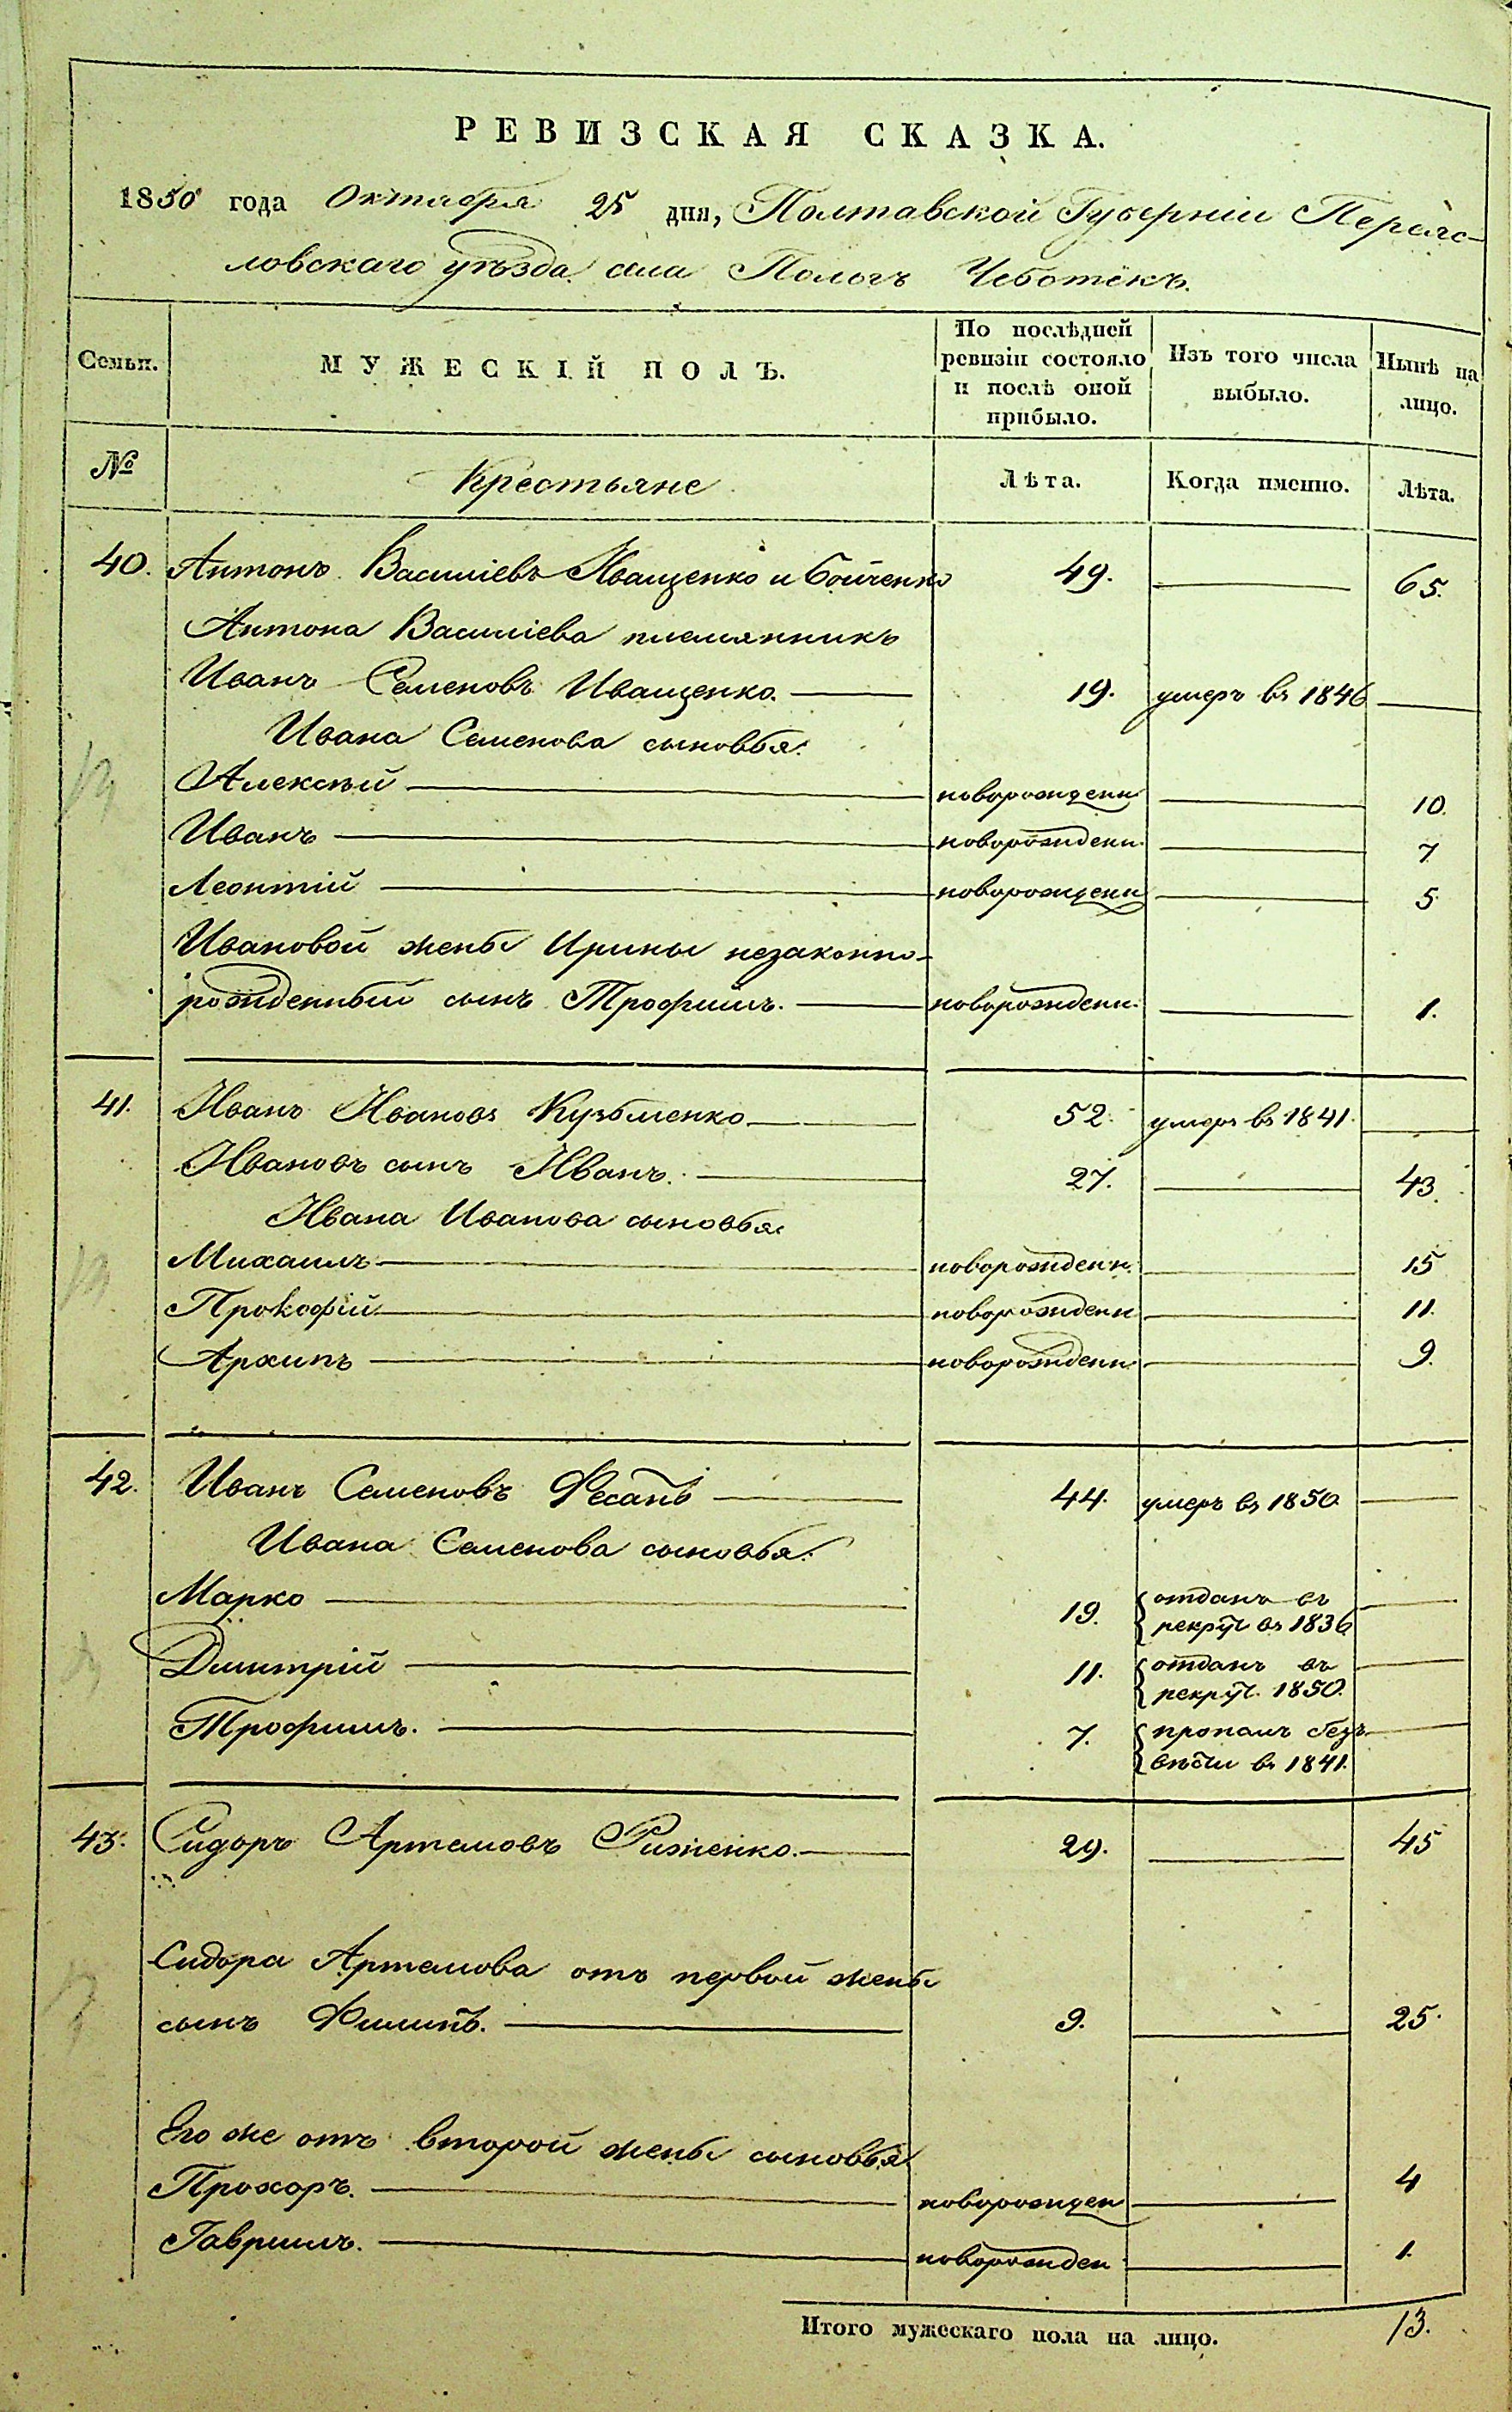 РЕВИЗСКАЯ СКАЗКА.
1850 года Октября 25 дня, Полтавской Губерніи Переяс-
ловскаго уѣзда села Пологъ Чеботѣкъ.
Семьи. МУЖЕСКІЙ ПОЛЪ. По послѣдней ревизіи состояло и послѣ оной прибыло. Изъ того числа выбыло. Нынѣ на лицо.
№ Крестьяне Лѣта. Когда именно. Лѣта.
40. Антонъ Василіевъ Иващенко и Бойченко 49. 65.
Антона Василіева племянникъ
Иванъ Семеновъ Иващенко. 19. умеръ въ 1846
Ивана Семенова сыновья:
Алексѣй новорожденн 10.
Иванъ новорожденн. 7
Леонтій новорожденн 5
Ивановой жены Ирины незаконно-
рожденный сынъ Трофимъ. новорожденн. 1.
41. Иванъ Ивановъ Кузьменко 52. умеръ въ 1841.
Ивановъ сынъ Иванъ. 27. 43.
Ивана Иванова сыновья
Михаилъ новорожденн. 15
Прокофій новорожденн 11.
Архипъ новорожденн. 9.
42. Иванъ Семеновъ Фесанъ 44. умеръ въ 1850
Ивана Семенова сыновья:
Марко 19. отданъ въ рекрут въ 1836
Дмитрій 11. отданъ въ рекрут. 1850.
Трофимъ. 7. пропалъ безъ вѣсти въ 1841.
43. Сидоръ Артемовъ Риженко. 29. 45
Сидора Артемова отъ первой жены
сынъ Филипъ. 9. 25.
Его же отъ второй жены сыновья
Прохоръ. новорожден 4
Гаврилъ. новорожден 1.
Итого мужескаго пола на лицо. 13.